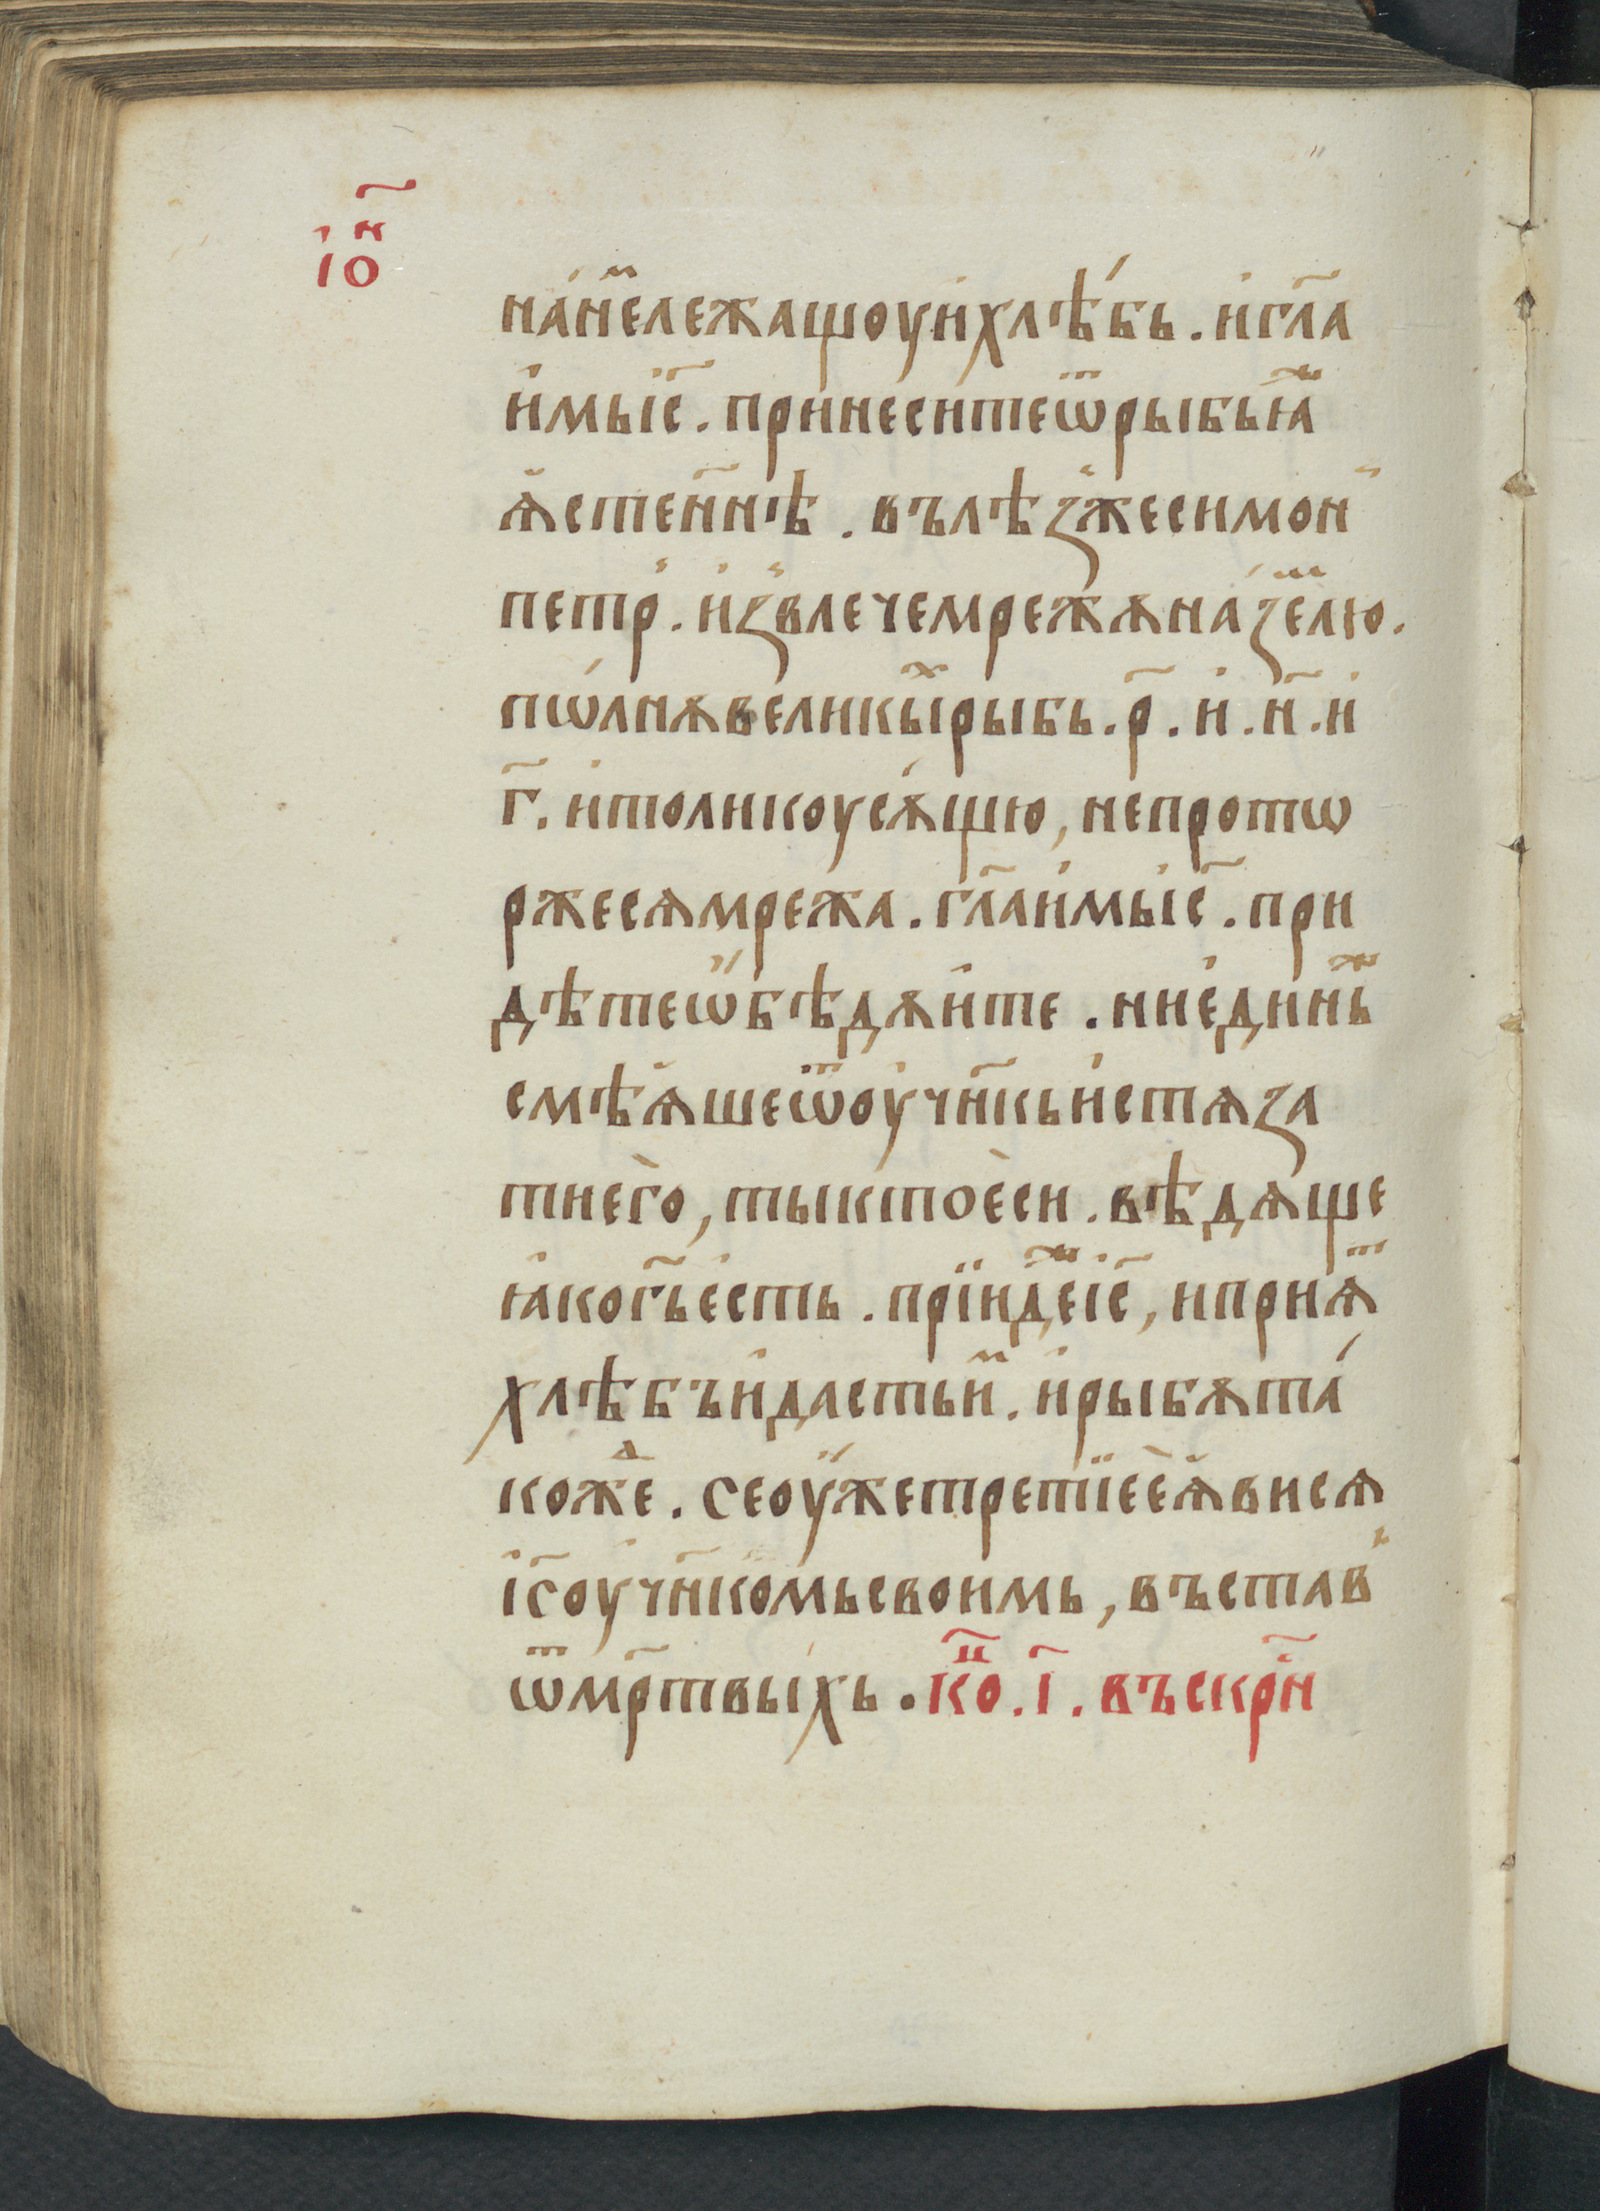 і҆ѡ҃н
на́нⷨележащоуи҆хлѣ́бь. и҆гл҃а
и҆мьі҆с҃. принеситеѿрыбьꙗⷤ
ѧ҆стен҃нѣ. вълѣз̾жесимон̾
петр̾. и҆з̾влечемрежѫна́зеⷨлю.
пѡ́лнѫвеликыⷯрыбь. р҃. и҆. н҃. и҆
г҃. и҆толикоусѫ́щю, непротѡ
ржесѧмрежа. гл҃аи҆мьі҆с҃. при
дѣтеѡ҆бѣдѫи҆те. ниє҆диньⷤ
смѣѧ҆шеѿоу҆чн҃кьи҆стѧза
тнего̀, тыктоѐси. вѣдѧще
ꙗ҆когь҃є҆сть. прїидеⷤі҆с҃, иприѧⷮ
хлѣбъи҆дастьиⷨ. и҆рыбѫта́
кожеⷣ. сеоу҆жетретїеѐѧ҆висѧ
і҆с҃оу҆чн҃комьсвоимь, въстав̾
ѿмр҃твы́хь. коⷩ҇. і҃. въскр҃н